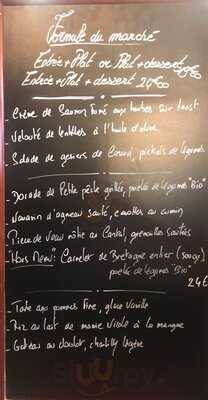 Formule du marché
Entrée + Plat ou Plat + dessert
Entrée + Plat + dessert
- Crème de Saumon Fumé aux herbes sur toast
- Velouté de lentilles à l'huile d'olive
- Salade de gésiers de Canard, pickels de légumes
- Dorade de Petite pêche grillée, poelée de légumes "Bio"
- Navarin d'agneau sauté, carottes au cumin
- Pièce de veau rôtie au Cantal, grenailles sautées
- "Hors Menu": Carrelet de Bretagne entier (500g)
poelée de légumes "Bio"
24€
- Tarte aux pommes Fine, glace Vanille
- Riz au lait de mamie Viole à la mangue
- Gâteau au chocolat, chantilly légère